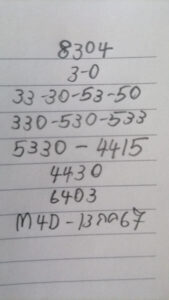 8304
3-0
33-30-53-50
330-530-533
5330 - 4415
4430
6403
M4D-13กค67